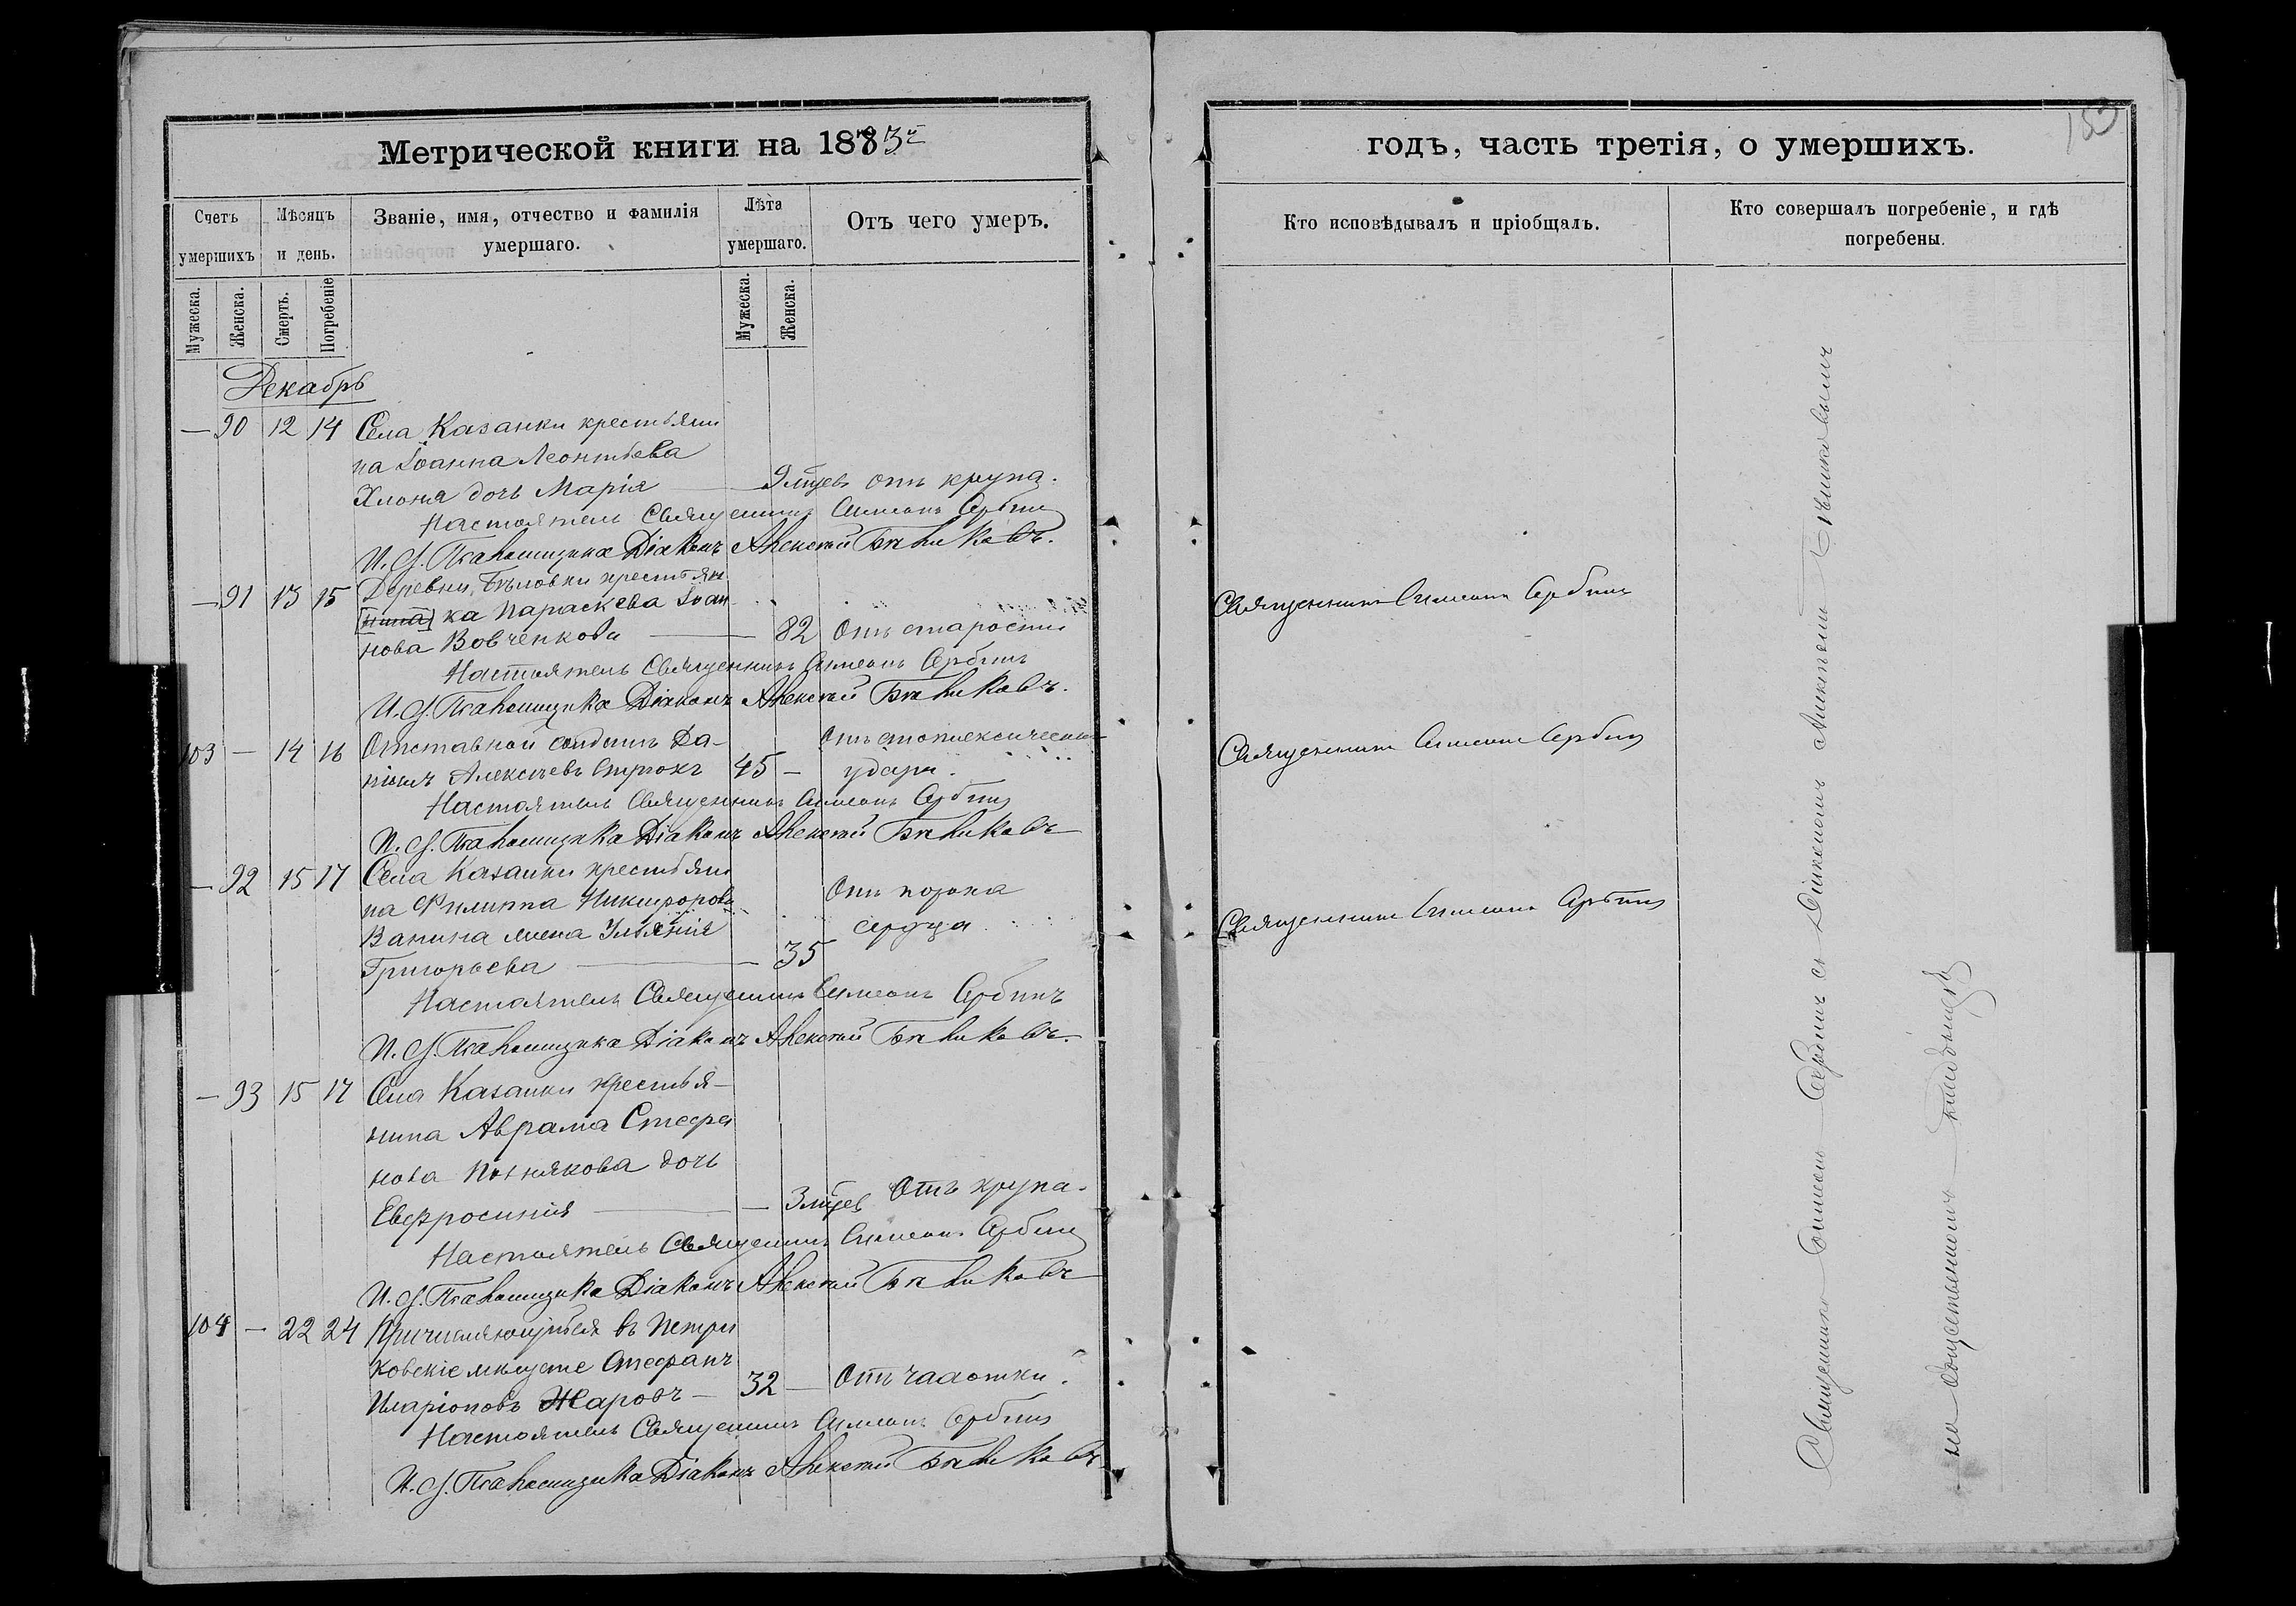 Метрической книги на 1883й
Счетъ умершихъ
Мѣсяцъ и день.
Званіе, имя, отчество и фамилія умершаго.
Лѣта умершаго.
Отъ чего умеръ.
Мужеска.
Женска.
Смерть.
Погребеніе
Мужеска.
Женска.
Декабрь
— 90 12 14 Села Казанки крестьяни
на Іоанна Леонтьева
дочь Марія — 9 мцевъ отъ крупа.
Настоятель Священникъ Симеонъ Сербинъ
И. д. Псаломщика Діаконъ Алексѣй
— 91 13 15 Деревни крестьян
ка Параскева Іоан
нова Вовченкова — 82 Отъ старости
Настоятель Священникъ Симеонъ Сербинъ
И. д. Псаломщика Діаконъ Алексѣй
103 — 14 16 Отставной солдатъ Да-
ніилъ Алексѣевъ 45 — Отъ апоплексическаго
удара.
Настоятель Священникъ Симеонъ Сербинъ
И. д. Псаломщика Діаконъ Алексѣй
— 92 15 17 Села Казанки крестьяни
на Филиппа Никифорова
Ванина жена Уліянія Отъ порока
сердца
Григорьева — 35
Настоятель Священникъ Симеонъ Сербинъ
И. д. Псаломщика Діаконъ Алексѣй
— 93 15 17 Села Казанки крестья-
нина Аврама Стефа
нова дочь
Евфросинія — 3 мцев Отъ крупа.
Настоятель Священникъ Симеонъ Сербинъ
И. д. Псаломщика Діаконъ Алексѣй
104 — 22 24 въ Петри
ковскіе мѣщане Стефанъ
Иларіоновъ Жаровъ — 32 — Отъ чахотки.
Настоятель Священникъ Симеонъ Сербинъ
И. д. Псаломщика Діаконъ Алексѣй
годъ, часть третія, о умершихъ.
Кто исповѣдывалъ и пріобщалъ.
Кто совершалъ погребеніе, и гдѣ погребены.
Священникъ Симеонъ Сербинъ
Священникъ Симеонъ Сербинъ
Священникъ Симеонъ Сербинъ
Священникъ Симеонъ Сербинъ съ Діакономъ
на кладбищѣ